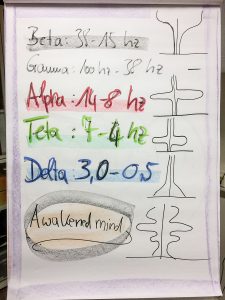 Beta: 38-15 hz
Gamma: 100 hz - 38 hz
Alpha: 14-8 hz
Teta: 7-4 hz
Delta: 3,0-0,5
Awakened mind